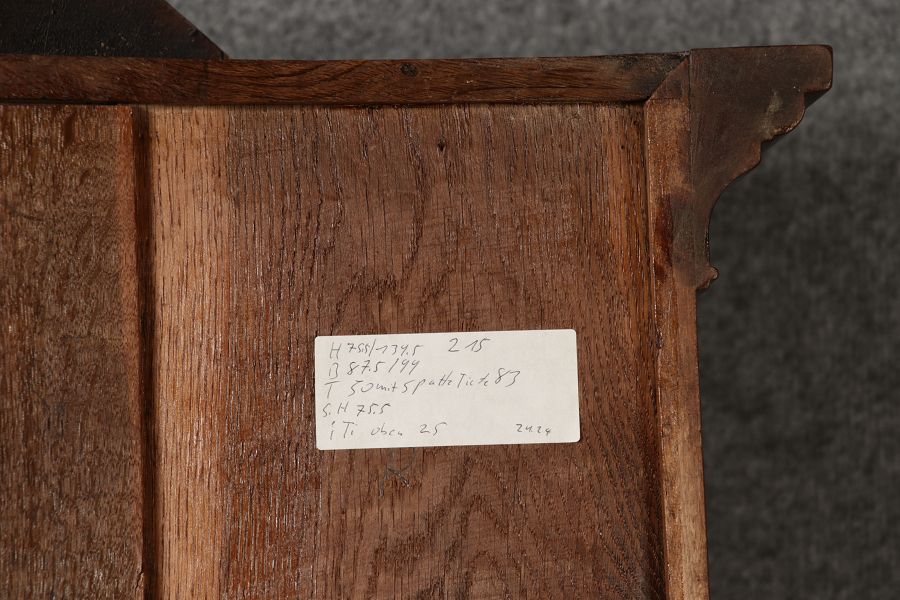 H 75.5/139.5 215
B 87.5/99
T 50 mit Platte Tiefe 83
S.H 75.5
i Ti oben 25 24.24